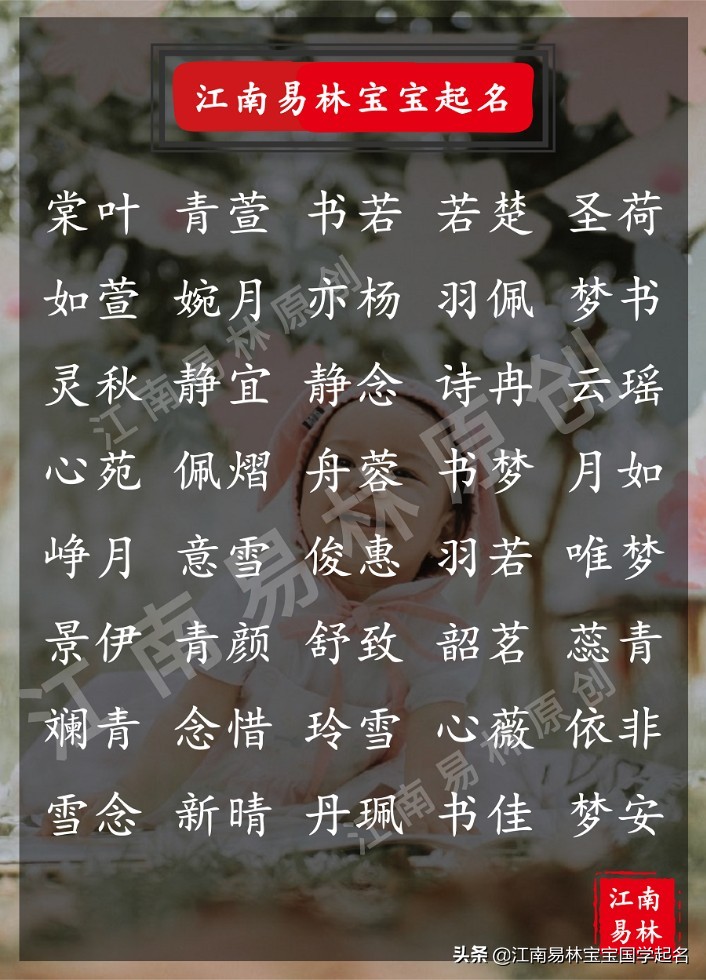 江南易林宝宝起名
棠叶 青萱 书若 若楚 圣荷
如萱 婉月 亦杨 羽佩 梦书
灵秋 静宜 静念 诗冉 云瑶
心苑 佩熠 舟蓉 书梦 月如
峥月 意雪 俊惠 羽若 唯梦
景伊 青颜 舒致 韶茗 蕊青
斓青 念惜 玲雪 心薇 依非
雪念 新晴 丹珮 书佳 梦安
江南易林原创
江南易林原创
江南易林原创
江南
易林
头条 @江南易林宝宝国学起名